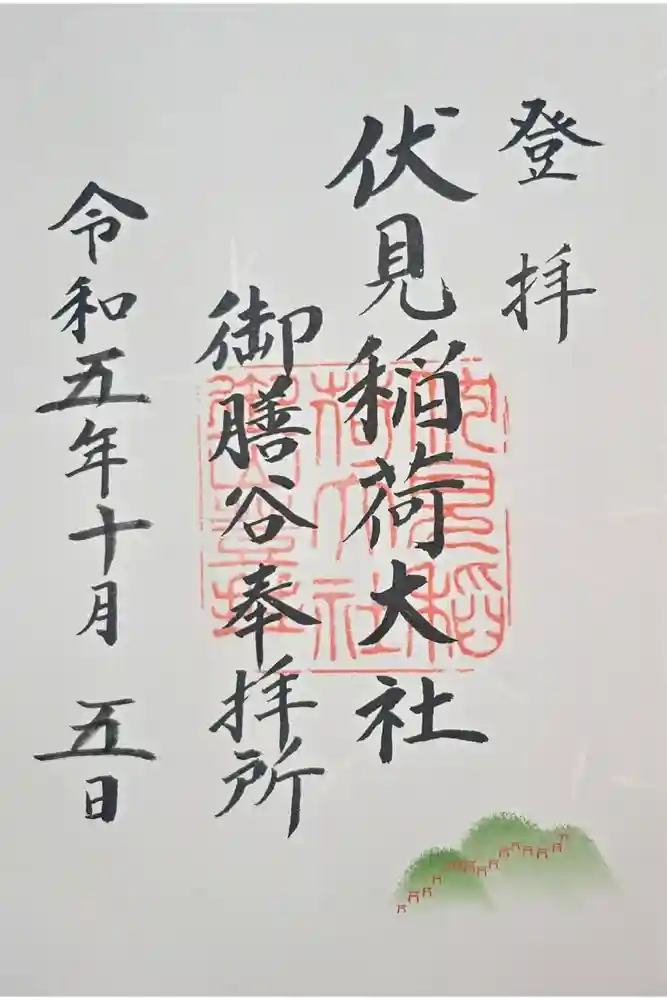 登拝
伏見稲荷大社
御膳谷奉拝所
令和五年十月五日